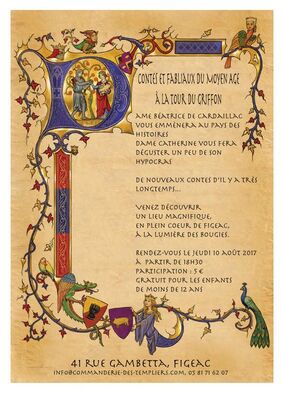 CONTES ET FABLIAUX DU MOYEN AGE
À LA TOUR DU GRIFFON
AME BÉATRICE DE CARDAILLAC
VOUS EMMÈNERA AU PAYS DES
HISTOIRES
DAME CATHERINE VOUS FERA
DÉGUSTER UN PEU DE SON
HYPOCRAS
DE NOUVEAUX CONTES D'IL Y A TRÉS
LONGTEMPS...
VENEZ DÉCOUVRIR
UN LIEU MAGNIFIQUE,
EN PLEIN COEUR DE FIGEAC,
À LA LUMIÈRE DES BOUGIES.
RENDEZ-VOUS LE JEUDI 10 AOÛT 2017
À PARTIR DE 18H30
PARTICIPATION : 5 €
GRATUIT POUR LES ENFANTS
DE MOINS DE 12 ANS
41 RUE GAMBETTA, FIGEAC
INFO@COMMANDERIE-DES-TEMPLIERS.COM, 05 81 71 62 07